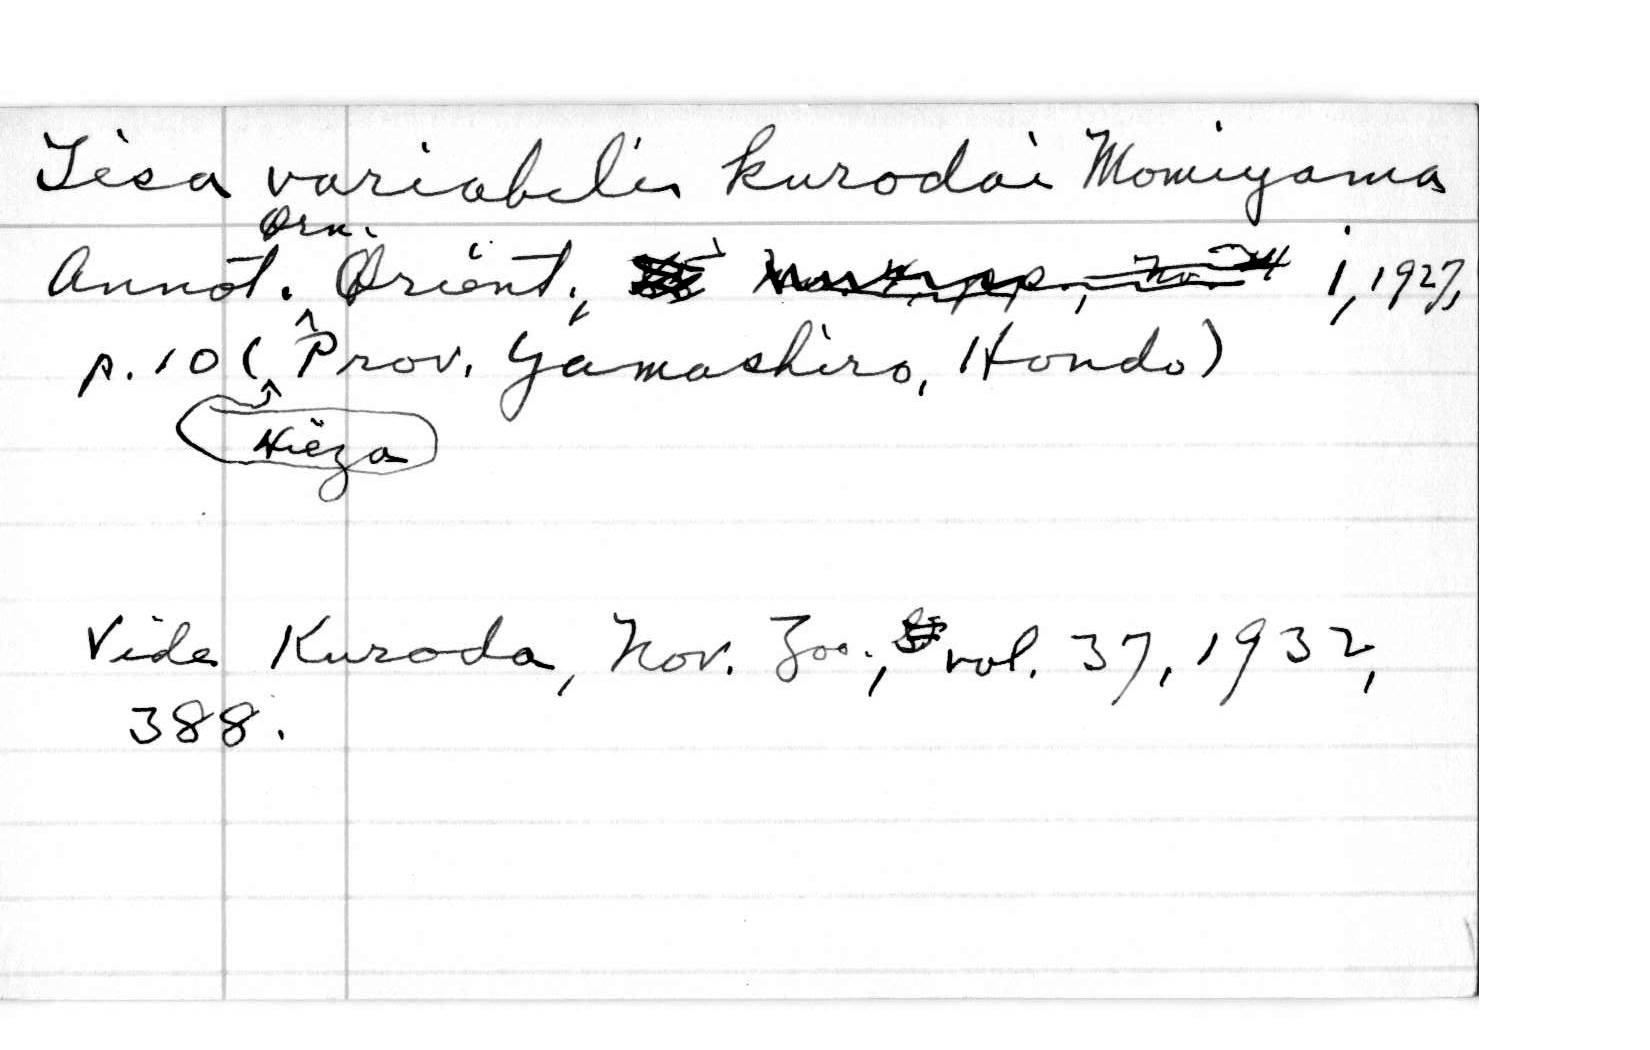 Iësa variabilis kurodai Momiyama
Orn.
Annot. Orient., i, 1927,
p. 10 ( Prov. Yamashiro, Hondo)
Hiëza
Vide Kuroda, Nov. Zoo., vol. 37, 1932,
388.